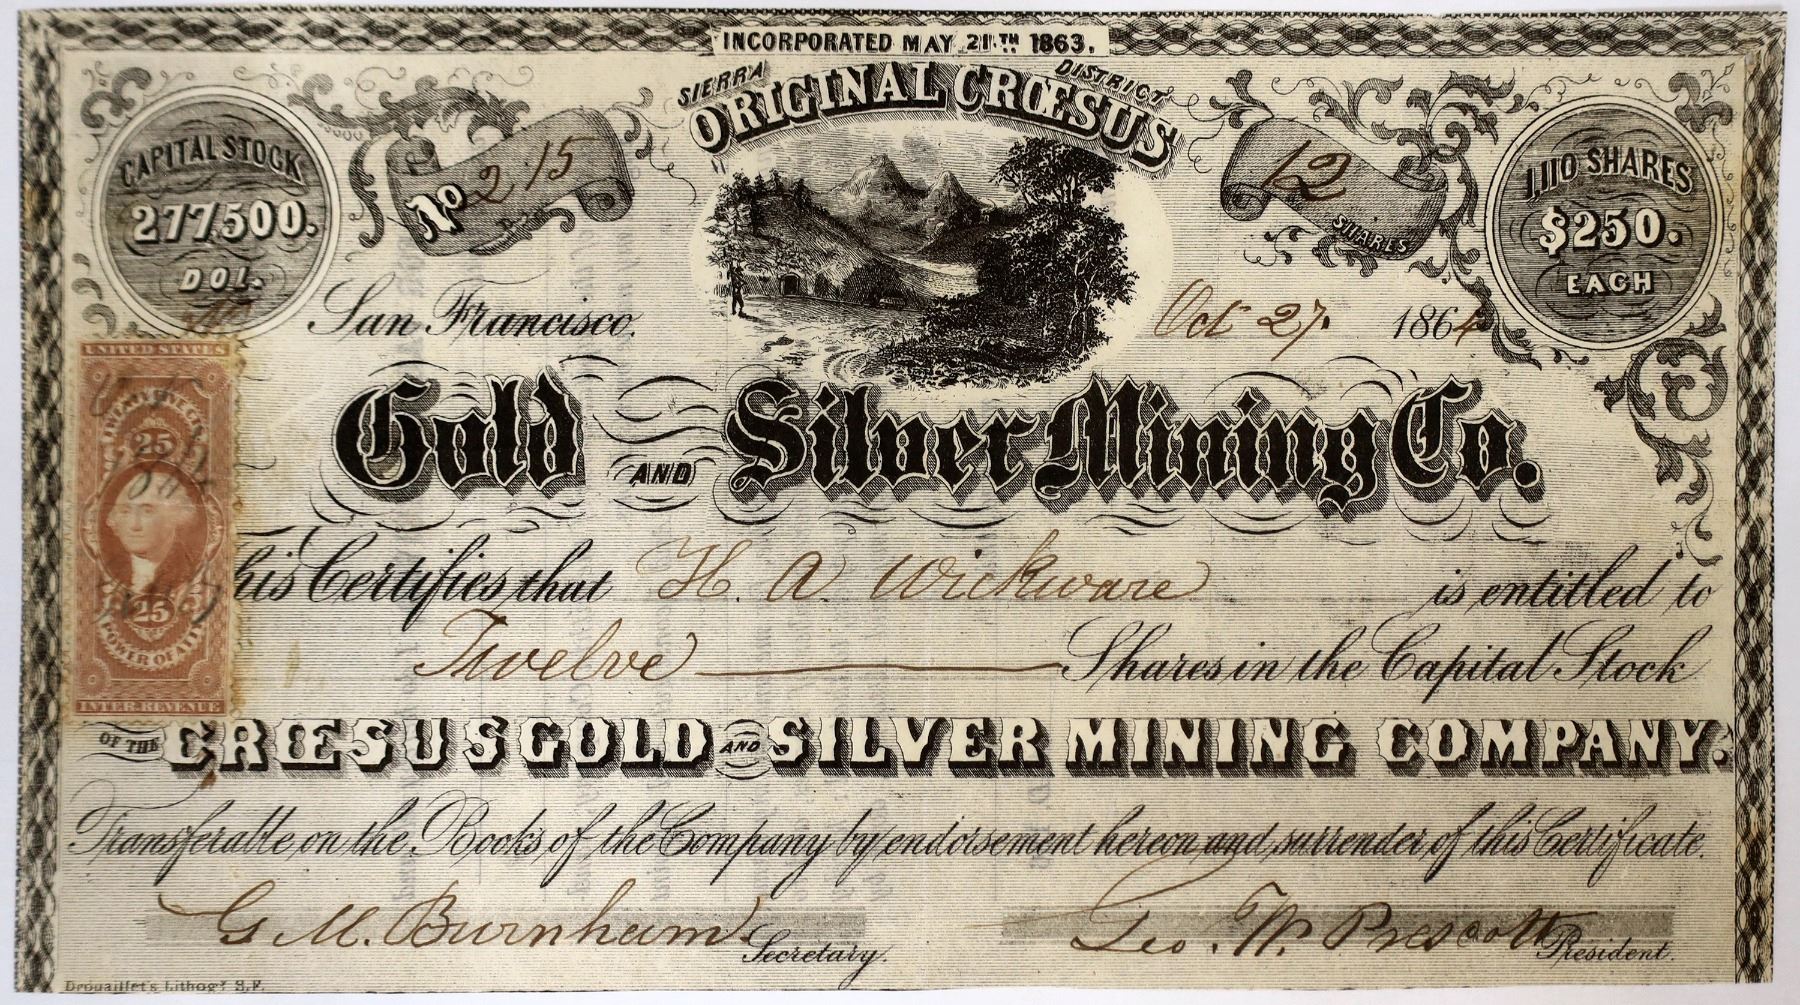 INCORPORATED MAY 21.TH 1863.
SIERRA DISTRICT
ORIGINAL CRŒSUS
CAPITAL STOCK
277500.
DOL.
No 215
12
SHARES
1,110 SHARES
$250.
EACH
San Francisco. Oct 27. 1864
Gold AND Silver Mining Co.
UNITED STATES
25
25
POWER OF ATT
INTER. REVENUE
his Certifies that H. A. Wickware is entitled to
Twelve Shares in the Capital Stock
OF THE CRŒSUS GOLD AND SILVER MINING COMPANY.
Transferable on the Books of the Company by endorsement hereon and surrender of this Certificate.
G. M. Burnham Secretary.
Geo. W. Prescott President.
Drouaillet's Lithogr. S.F.